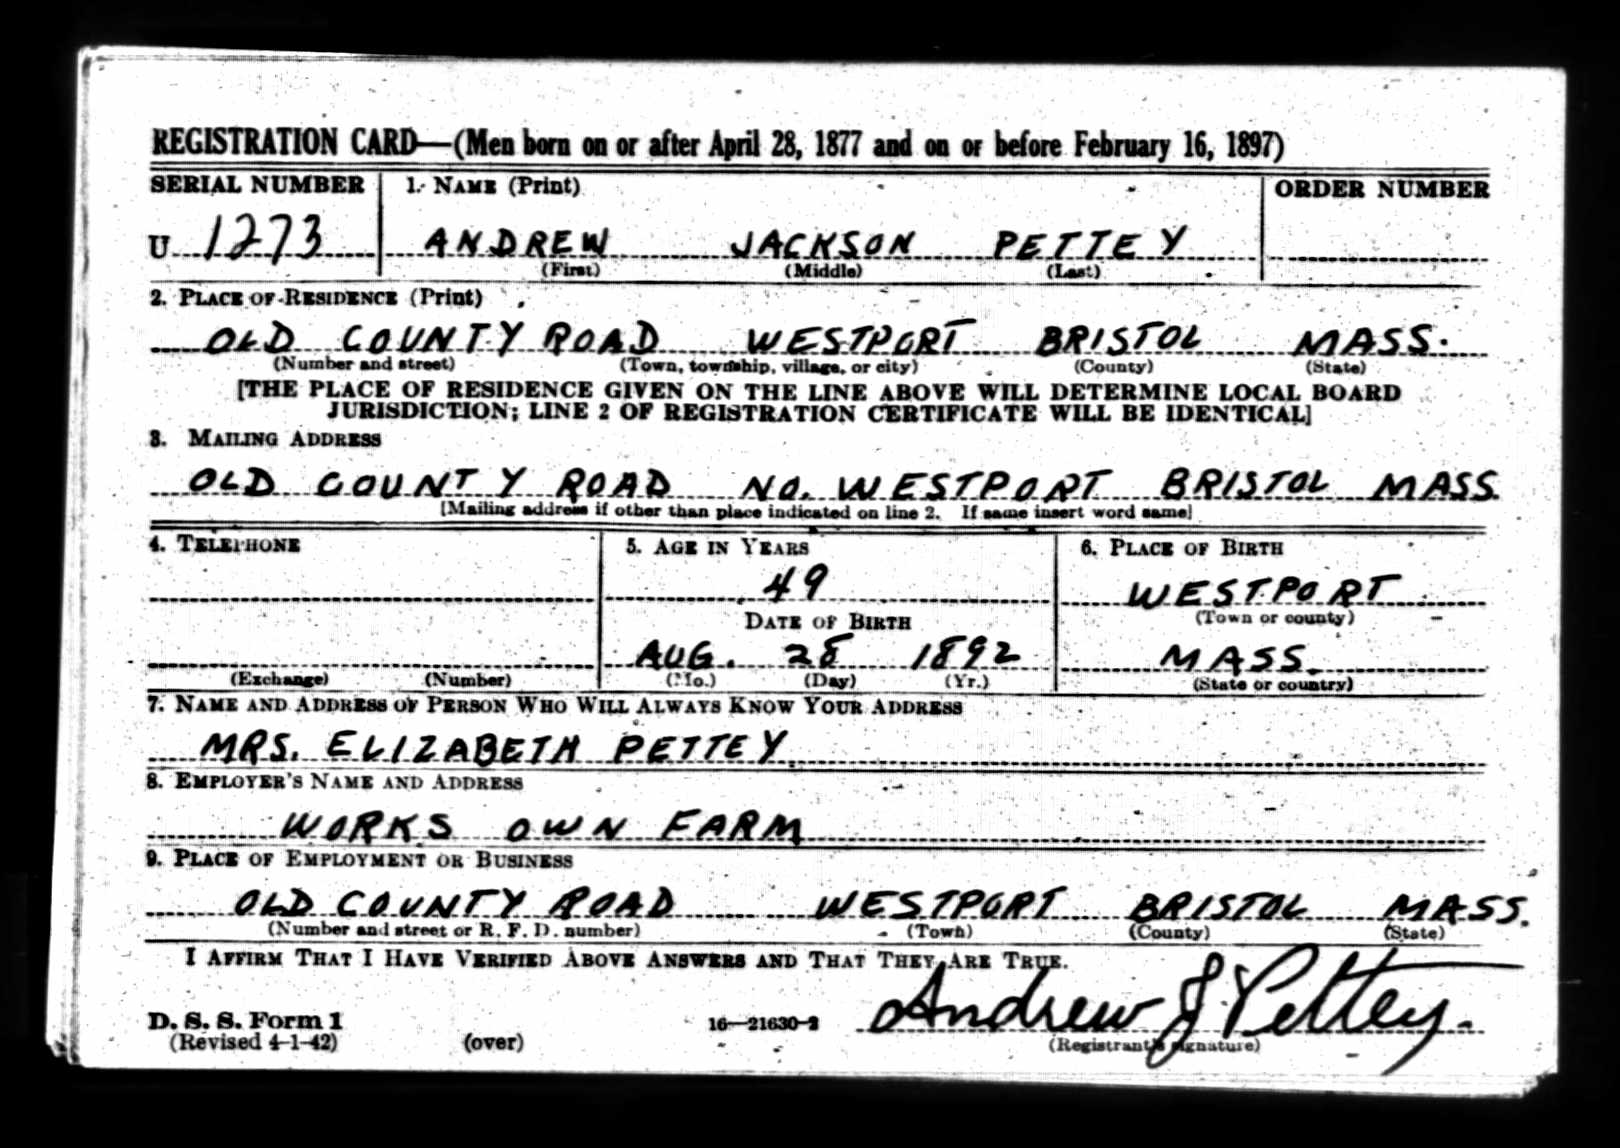 REGISTRATION CARD—(Men born on or after April 28, 1877 and on or before February 16, 1897)
SERIAL NUMBER 1. NAME (Print) ORDER NUMBER
U 1273 ANDREW JACKSON PETTEY
(First) (Middle) (Last)
2. PLACE OF RESIDENCE (Print)
OLD COUNTY ROAD WESTPORT BRISTOL MASS.
(Number and street) (Town, township, village, or city) (County) (State)
[THE PLACE OF RESIDENCE GIVEN ON THE LINE ABOVE WILL DETERMINE LOCAL BOARD
JURISDICTION; LINE 2 OF REGISTRATION CERTIFICATE WILL BE IDENTICAL]
3. MAILING ADDRESS
OLD COUNTY ROAD NO. WESTPORT BRISTOL MASS.
[Mailing address if other than place indicated on line 2. If same insert word same]
4. TELEPHONE 5. AGE IN YEARS 6. PLACE OF BIRTH
49 WESTPORT
DATE OF BIRTH (Town or county)
AUG. 28 1892 MASS.
(Exchange) (Number) (Mo.) (Day) (Yr.) (State or country)
7. NAME AND ADDRESS OF PERSON WHO WILL ALWAYS KNOW YOUR ADDRESS
MRS. ELIZABETH PETTEY
8. EMPLOYER'S NAME AND ADDRESS
WORKS OWN FARM
9. PLACE OF EMPLOYMENT OR BUSINESS
OLD COUNTY ROAD WESTPORT BRISTOL MASS.
(Number and street or R. F. D. number) (Town) (County) (State)
I AFFIRM THAT I HAVE VERIFIED ABOVE ANSWERS AND THAT THEY ARE TRUE.
D. S. S. Form 1 16—21630-2 Andrew J. Pettey.
(Revised 4-1-42) (over) (Registrant's signature)